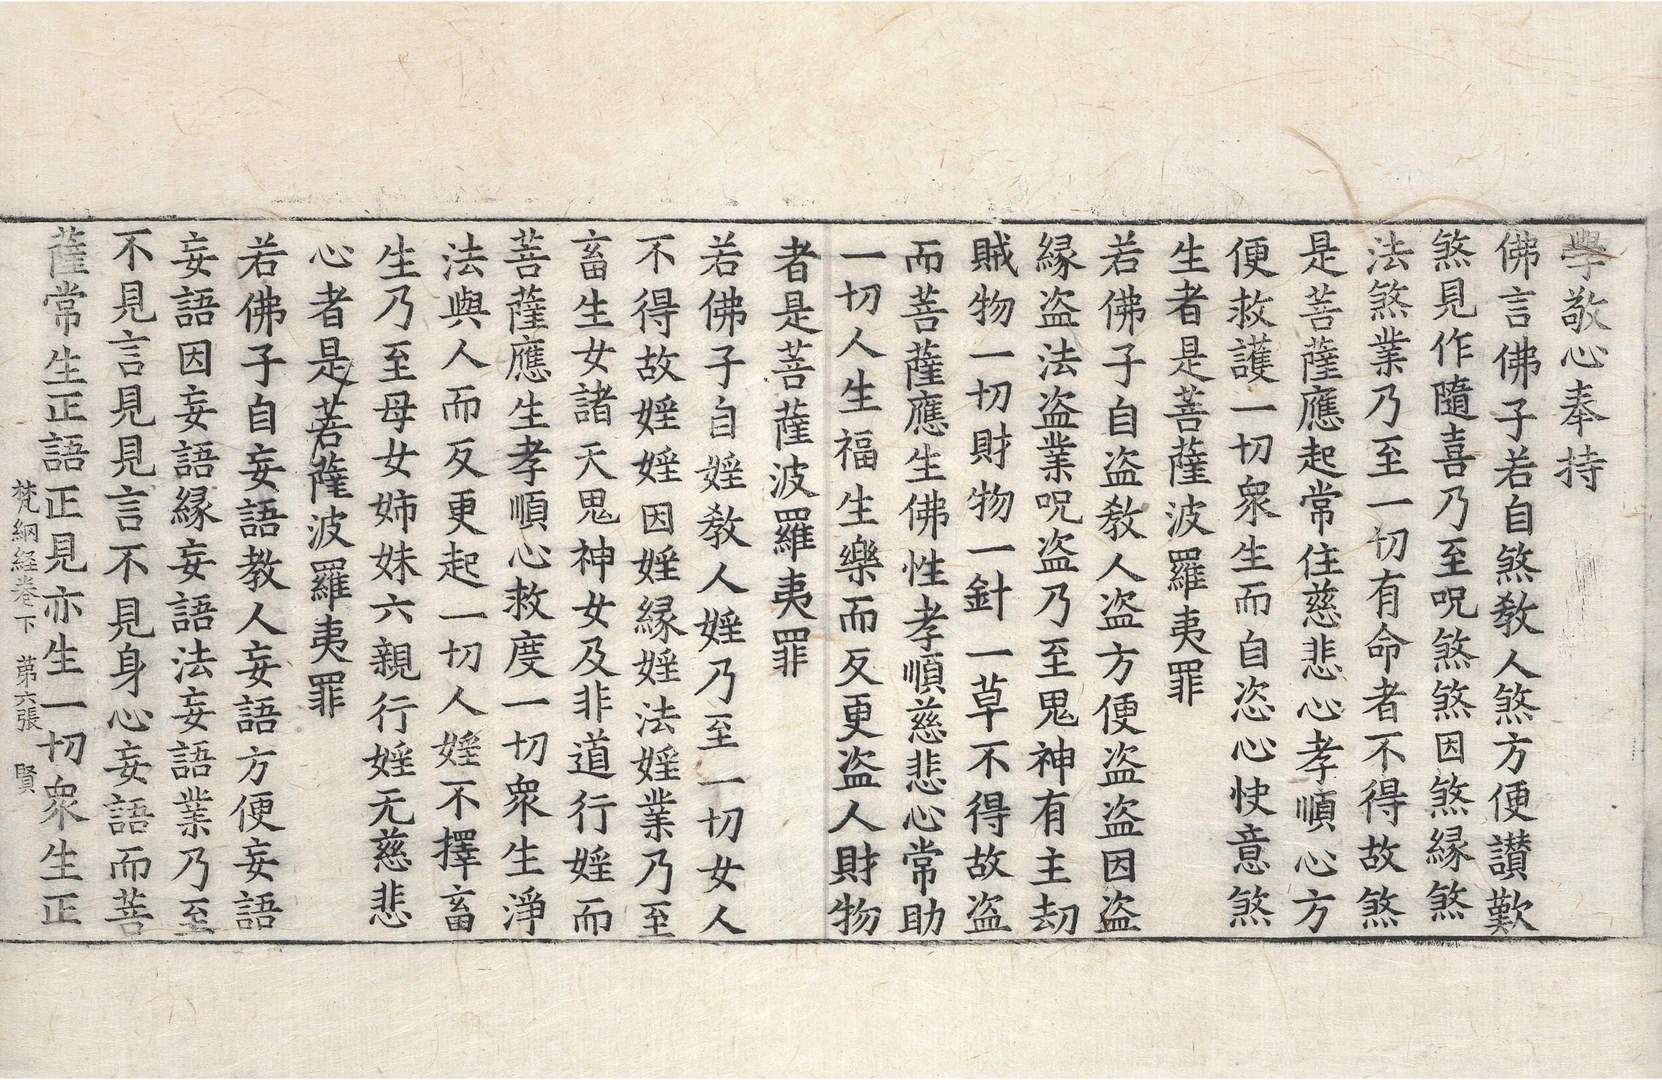 學敬心奉持
佛言佛子若自煞教人煞方便讃歎
煞見作隨喜乃至呪煞煞因煞縁煞
法煞業乃至一切有命者不得故煞
是菩薩應起常住慈悲心孝順心方
便救護一切衆生而自恣心快意煞
生者是菩薩波羅夷罪
若佛子自盗教人盗方便盗盗因盗
縁盗法盗業呪盗乃至鬼神有主劫
賊物一切財物一針一草不得故盗
而菩薩應生佛性孝順慈悲心常助
一切人生福生樂而反更盗人財物
者是菩薩波羅夷罪
若佛子自婬教人婬乃至一切女人
不得故婬婬因婬縁婬法婬業乃至
畜生女諸天鬼神女及非道行婬而
菩薩應生孝順心救度一切衆生淨
法與人而反更起一切人婬不擇畜
生乃至母女姉妹六親行婬无慈悲
心者是菩薩波羅夷罪
若佛子自妄語教人妄語方便妄語
妄語因妄語縁妄語法妄語業乃至
不見言見見言不見身心妄語而菩
薩常生正語正見亦生一切衆生正
梵網経巻下 苐六張 賢